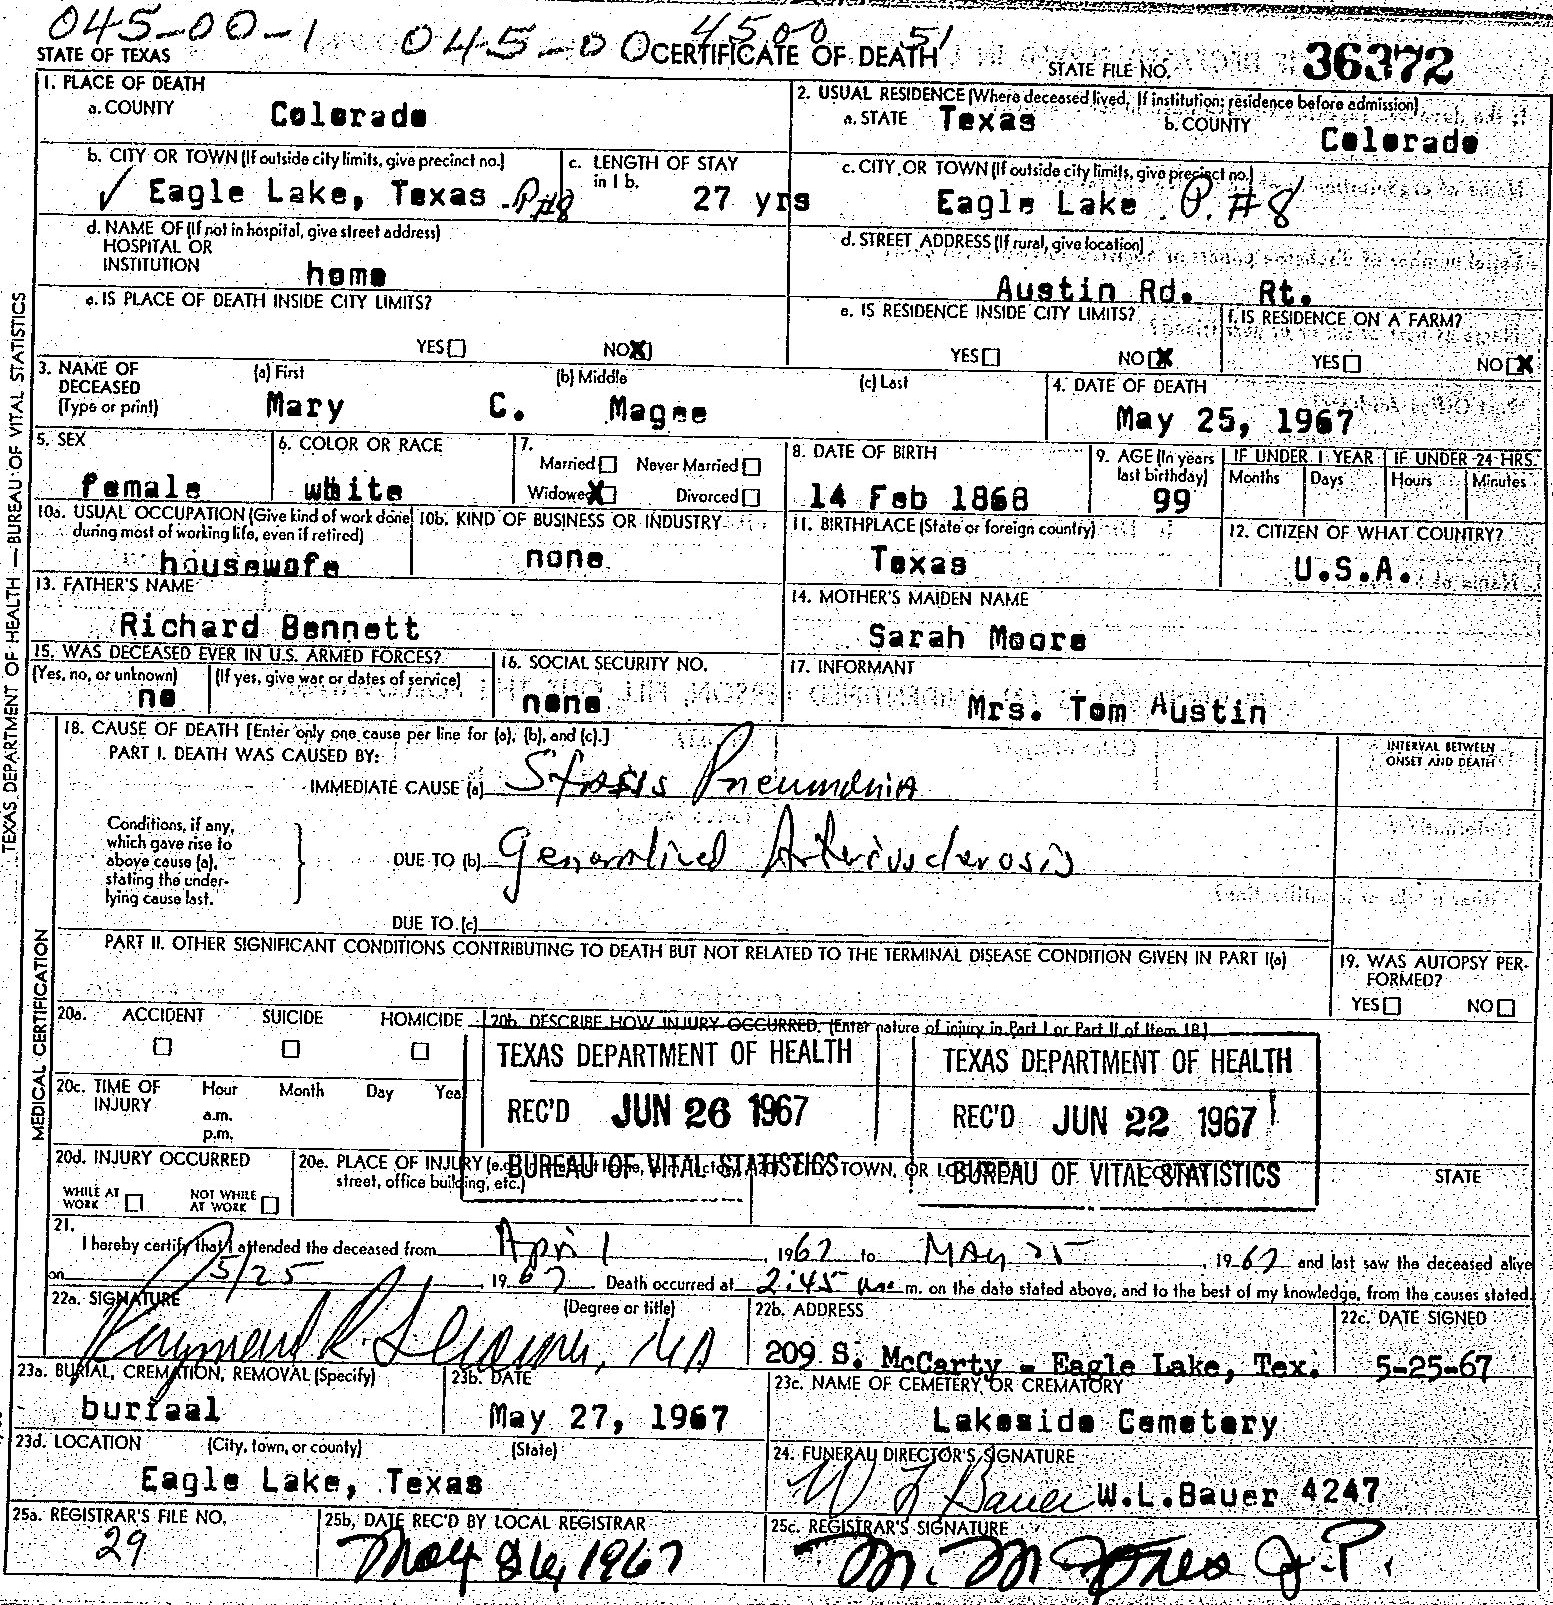 045-00-1 045-00 4500 51
STATE OF TEXAS CERTIFICATE OF DEATH STATE FILE NO. 36372
TEXAS DEPARTMENT OF HEALTH — BUREAU OF VITAL STATISTICS
1. PLACE OF DEATH
a. COUNTY Colorado
2. USUAL RESIDENCE (Where deceased lived, If institution: residence before admission)
a. STATE Texas b. COUNTY Colorado
b. CITY OR TOWN (If outside city limits, give precinct no.) ✓ Eagle Lake, Texas P#8
c. LENGTH OF STAY in 1 b. 27 yrs
c. CITY OR TOWN (If outside city limits, give precinct no.) Eagle Lake P. #8
d. NAME OF (If not in hospital, give street address)
HOSPITAL OR
INSTITUTION home
d. STREET ADDRESS (If rural, give location)
Austin Rd. Rt.
e. IS PLACE OF DEATH INSIDE CITY LIMITS?
YES NO X
e. IS RESIDENCE INSIDE CITY LIMITS?
YES NO X
f. IS RESIDENCE ON A FARM?
YES NO X
3. NAME OF DECEASED (Type or print)
(a) First (b) Middle (c) Last
Mary C. Magee
4. DATE OF DEATH
May 25, 1967
5. SEX
female
6. COLOR OR RACE
white
7.
Married Never Married
Widowed X Divorced
8. DATE OF BIRTH
14 Feb 1868
9. AGE (In years last birthday)
99
IF UNDER 1 YEAR IF UNDER 24 HRS.
Months Days Hours Minutes
10a. USUAL OCCUPATION (Give kind of work done during most of working life, even if retired)
housewofe
10b. KIND OF BUSINESS OR INDUSTRY
none
11. BIRTHPLACE (State or foreign country)
Texas
12. CITIZEN OF WHAT COUNTRY?
U.S.A.
13. FATHER'S NAME
Richard Bennett
14. MOTHER'S MAIDEN NAME
Sarah Moore
15. WAS DECEASED EVER IN U.S. ARMED FORCES?
(Yes, no, or unknown) (If yes, give war or dates of service)
no
16. SOCIAL SECURITY NO.
none
17. INFORMANT
Mrs. Tom Austin
MEDICAL CERTIFICATION
18. CAUSE OF DEATH [Enter only one cause per line for (a), (b), and (c).]
PART I. DEATH WAS CAUSED BY:
IMMEDIATE CAUSE (a) Stasis Pneumonia
INTERVAL BETWEEN
ONSET AND DEATH
Conditions, if any,
which gave rise to
above cause (a),
stating the under-
lying cause last.
DUE TO (b) Generalized Arteriosclerosis
DUE TO (c)
PART II. OTHER SIGNIFICANT CONDITIONS CONTRIBUTING TO DEATH BUT NOT RELATED TO THE TERMINAL DISEASE CONDITION GIVEN IN PART I(a)
19. WAS AUTOPSY PER-
FORMED?
YES NO
20a. ACCIDENT SUICIDE HOMICIDE
20b. DESCRIBE HOW INJURY OCCURRED. (Enter nature of injury in Part I or Part II of Item 18.)
TEXAS DEPARTMENT OF HEALTH
REC'D JUN 26 1967
BUREAU OF VITAL STATISTICS
TEXAS DEPARTMENT OF HEALTH
REC'D JUN 22 1967
BUREAU OF VITAL STATISTICS
20c. TIME OF INJURY Hour Month Day Yea
a.m.
p.m.
20d. INJURY OCCURRED
WHILE AT WORK NOT WHILE AT WORK
20e. PLACE OF INJURY (e.g.
street, office building, etc.)
TOWN, OR STATE
21.
I hereby certify that I attended the deceased from April, 1967 to May 25, 1967 and last saw the deceased alive
on 5/25, 1967 Death occurred at 2:45 m. on the date stated above, and to the best of my knowledge, from the causes stated.
22a. SIGNATURE (Degree or title)
Raymond R.
22b. ADDRESS
209 S. McCarty - Eagle Lake, Tex.
22c. DATE SIGNED
5-25-67
23a. BURIAL, CREMATION, REMOVAL (Specify)
buriaal
23b. DATE
May 27, 1967
23c. NAME OF CEMETERY OR CREMATORY
Lakeside Cemetery
23d. LOCATION (City, town, or county) (State)
Eagle Lake, Texas
24. FUNERAL DIRECTOR'S SIGNATURE
W L Bauer W.L.Bauer 4247
25a. REGISTRAR'S FILE NO.
29
25b. DATE REC'D BY LOCAL REGISTRAR
May 26, 1967
25c. REGISTRAR'S SIGNATURE
M. M Jones J.P.